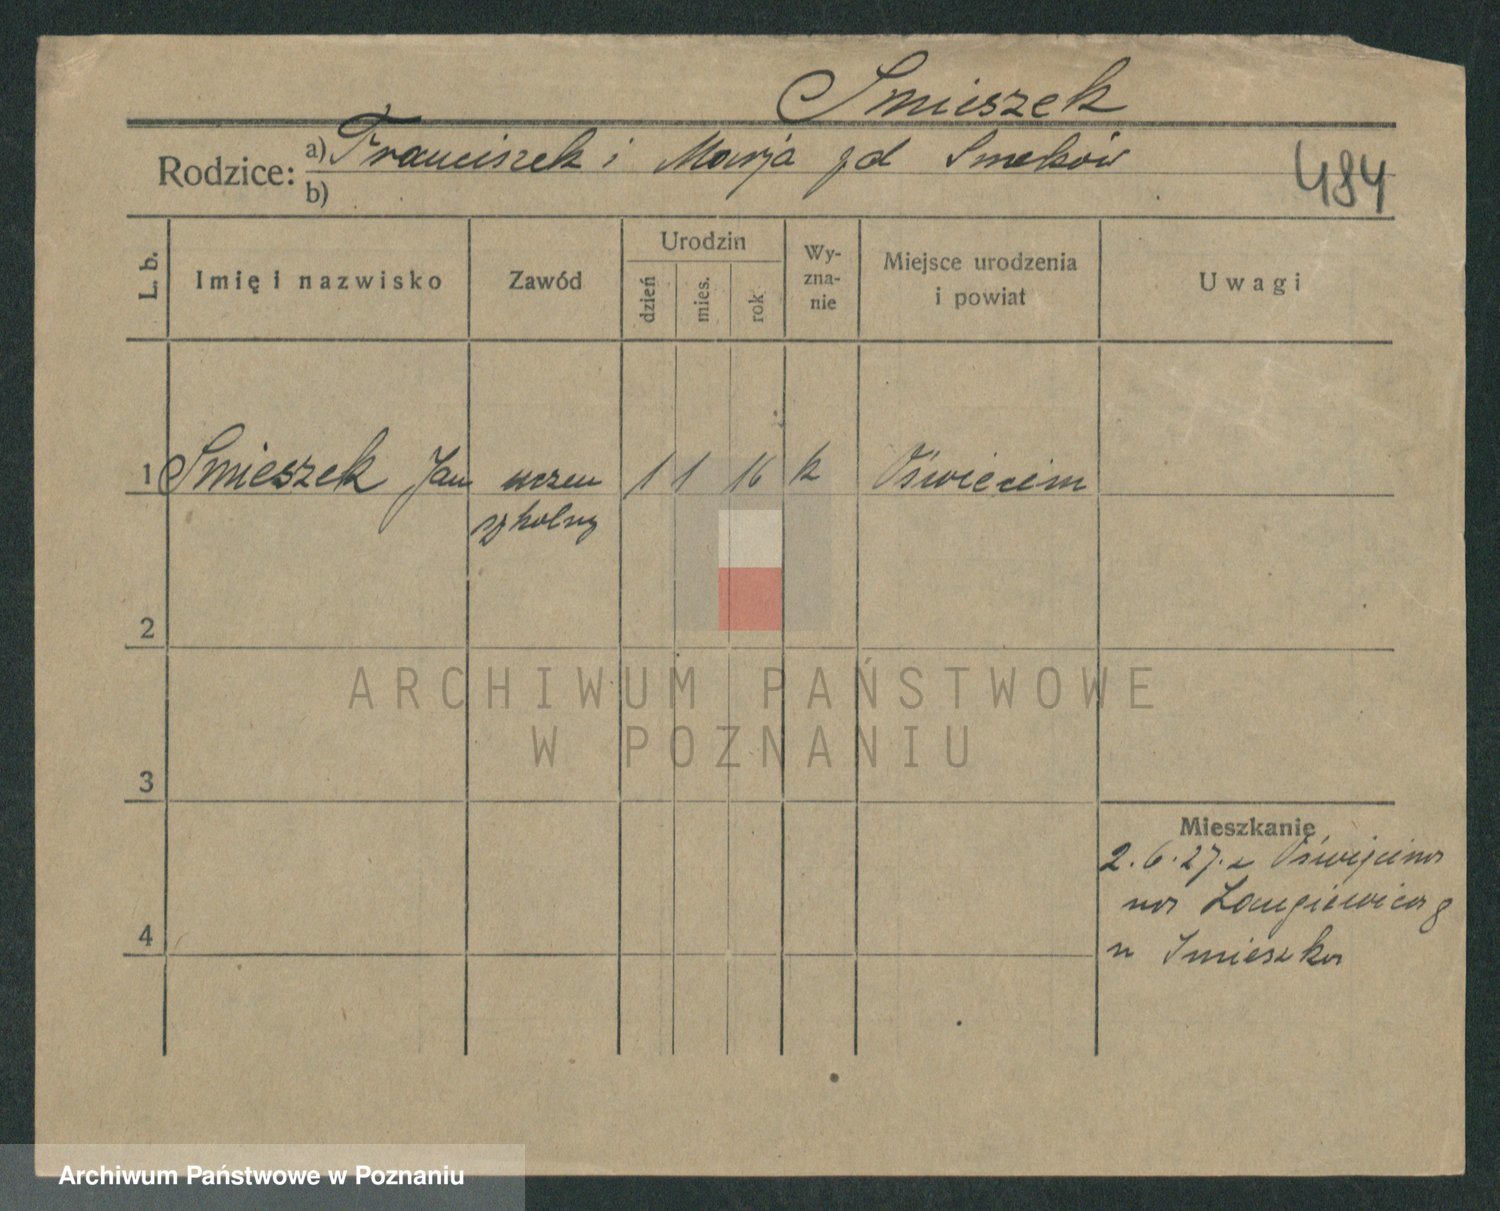 Smieszek
Rodzice: a) Franciszek i Marja zd Smeków
b)
484
L. b. Imię i nazwisko Zawód Urodzin dzień mies. rok Wy-zna-nie Miejsce urodzenia i powiat Uwagi
1 Smieszek Jan uczeń 1 1 16 k Oświecim
szkolny
2
ARCHIWUM PAŃSTWOWE
W POZNANIU
3
Mieszkanie
2.6.27. z Oświęcima
na Langiewicza 8
4
u Smieszka
Archiwum Państwowe w Poznaniu